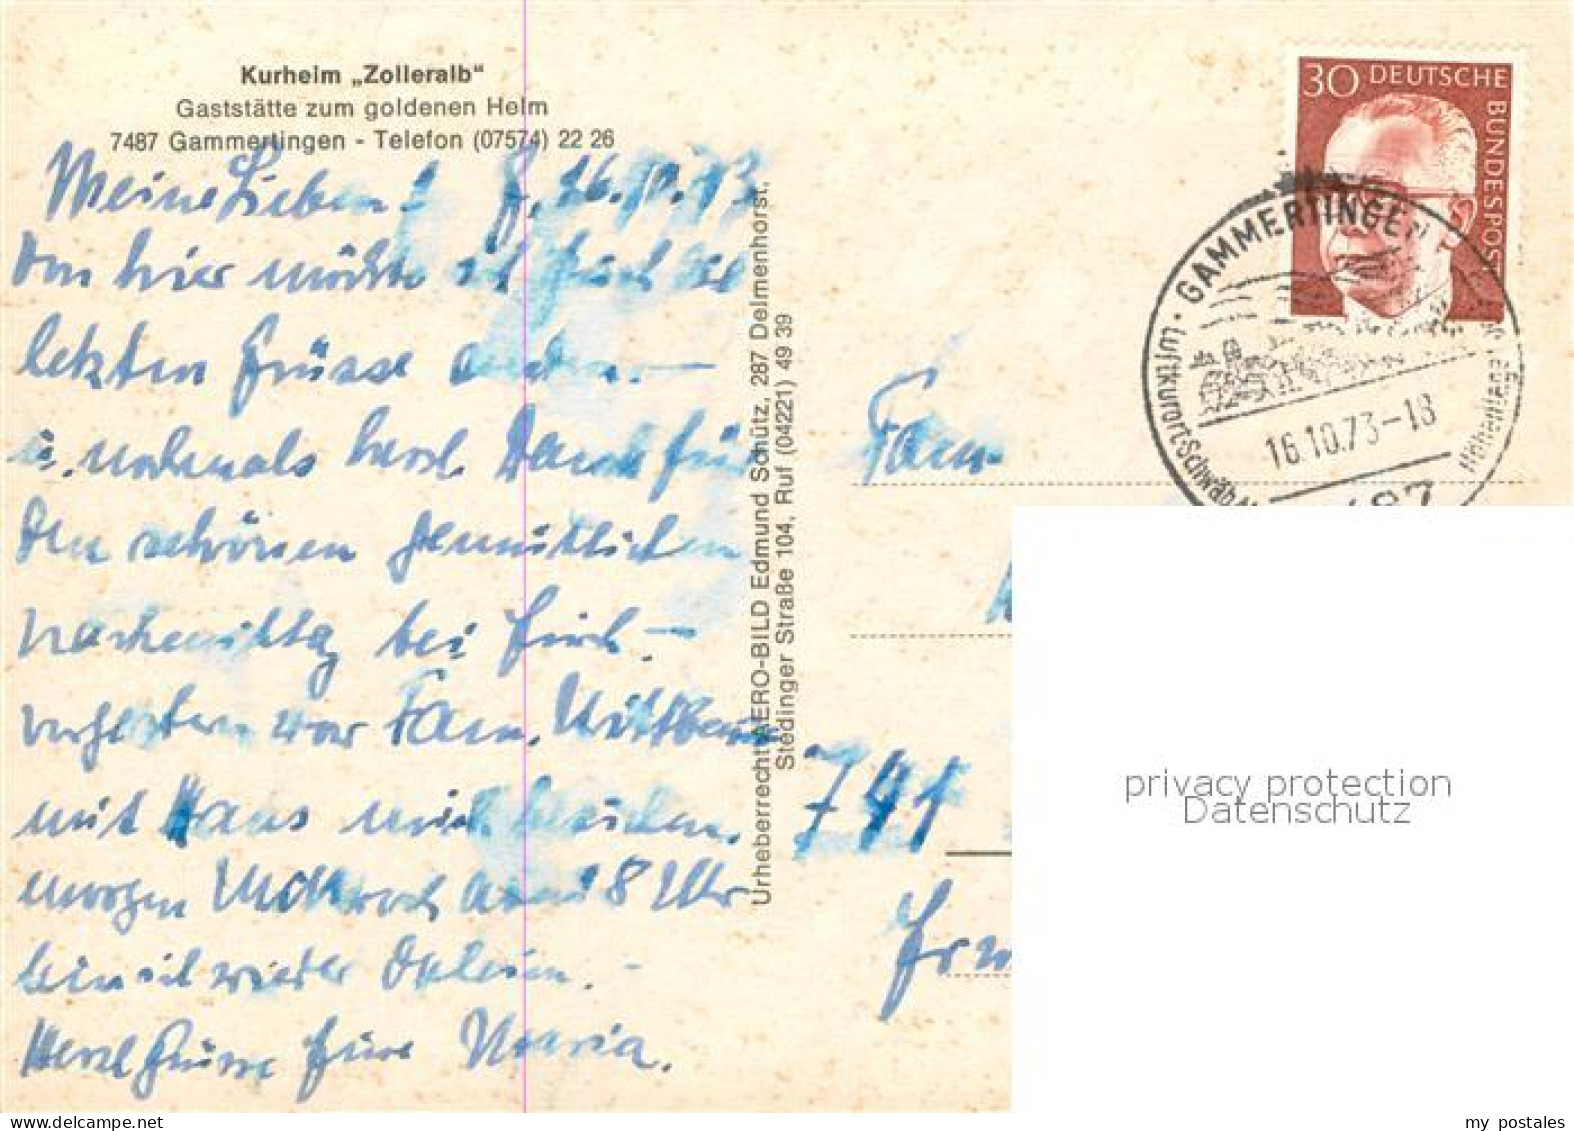 Kurheim „Zolleralb“
Gaststätte zum goldenen Helm
7487 Gammertingen - Telefon (07574) 22 26
Meine Lieben! G, 16.10.73
Von hier möchte ich Euch die
letzten Grüsse senden. —
u. nochmals herzl. Dank für
den schönen gemütlichen
Nachmittag bei Euch. —
vorgestern war Fam.
mit Hans mich besuchen.
morgen Mittwoch Abend 8 Uhr
bin ich wieder daheim. -
Herzl Grüsse Eure Maria.
Urheberrecht AERO-BILD Edmund Schütz, 287 Delmenhorst.
Stedinger Straße 104, Ruf (04221) 49 39
30 DEUTSCHE BUNDESPOST
GAMMERTINGEN
16.10.73-18
Luftkurort · Schwäb.
Höhenlage
Fam.
741
privacy protection
Datenschutz
my postales